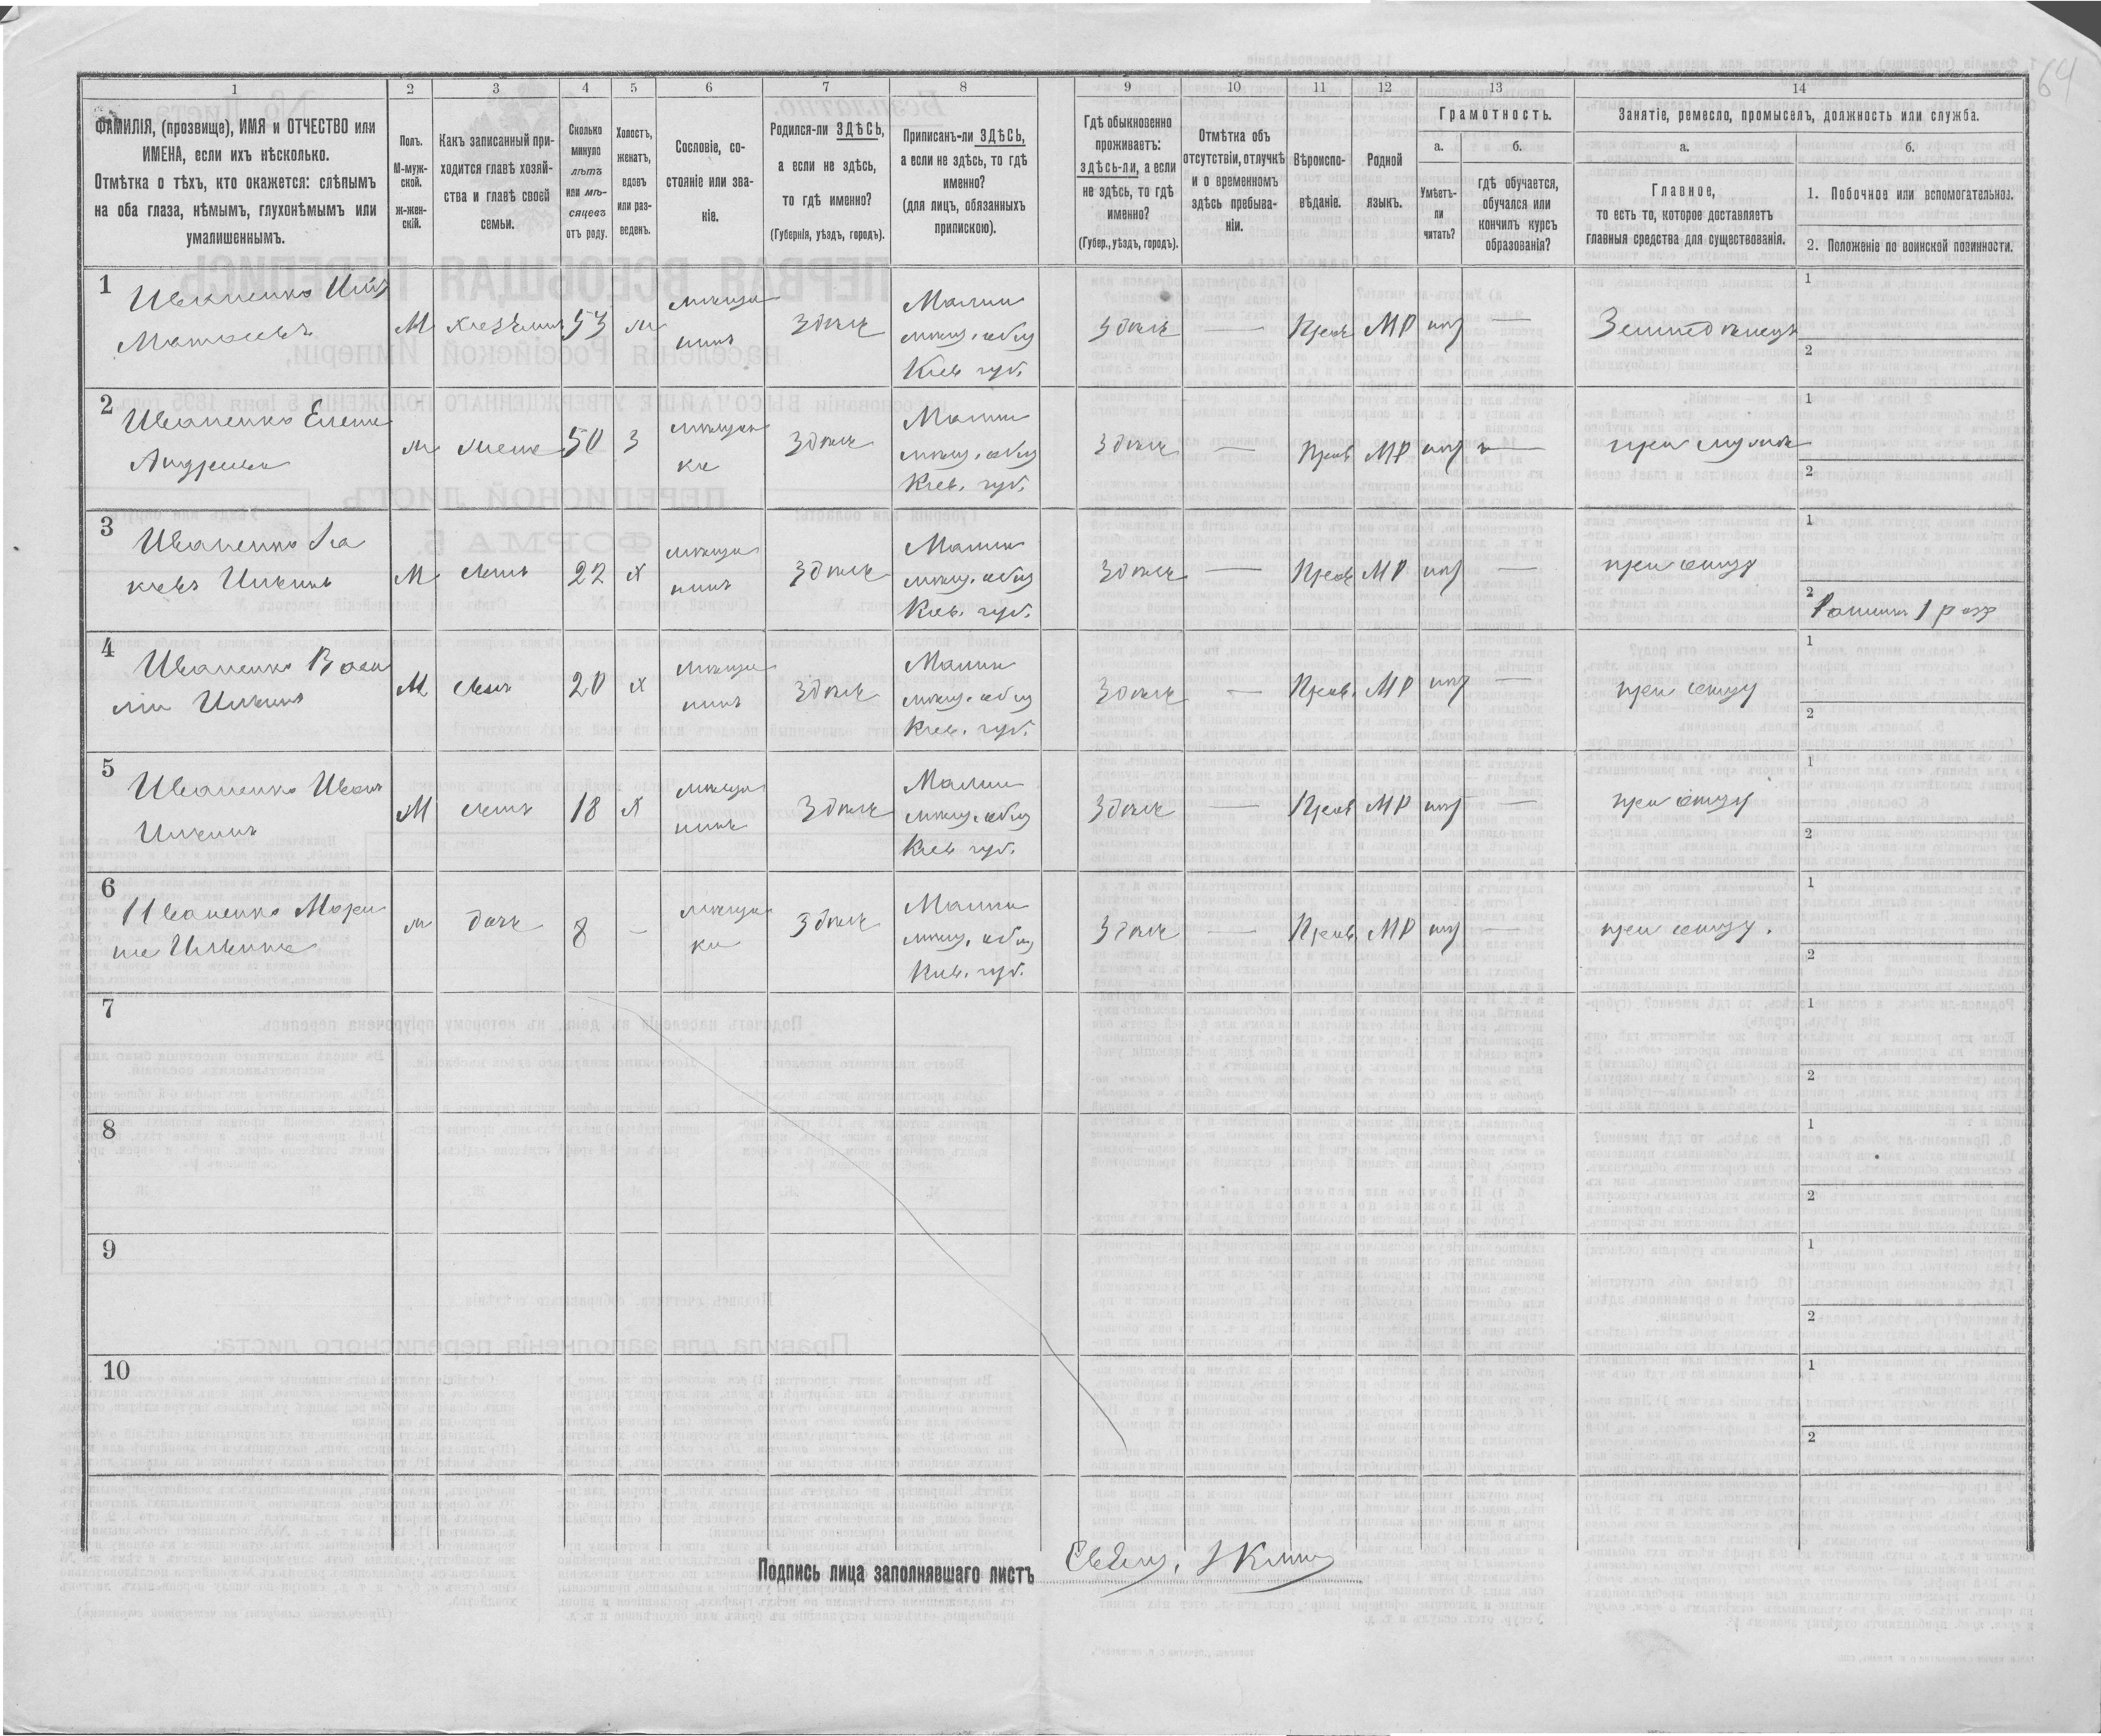 64
1 2 3 4 5 6 7 8 9 10 11 12 13 14
ФАМИЛІЯ, (прозвище), ИМЯ и ОТЧЕСТВО или
ИМЕНА, если ихъ нѣсколько.
Отмѣтка о тѣхъ, кто окажется: слѣпымъ
на оба глаза, нѣмымъ, глухонѣмымъ или
умалишеннымъ.
Полъ.
М-муж-
ской.
ж-жен-
скій.
Какъ записанный при-
ходится главѣ хозяй-
ства и главѣ своей
семьи.
Сколько
минуло
лѣтъ
или мѣ-
сяцевъ
отъ роду.
Холостъ,
женатъ,
вдовъ
или раз-
веденъ.
Сословіе, со-
стояніе или зва-
ніе.
Родился-ли ЗДѢСЬ,
а если не здѣсь,
то гдѣ именно?
(Губернія, уѣздъ, городъ).
Приписанъ-ли ЗДѢСЬ,
а если не здѣсь, то гдѣ
именно?
(для лицъ, обязанныхъ
припискою).
Гдѣ обыкновенно
проживаетъ:
здѣсь-ли, а если
не здѣсь, то гдѣ
именно?
(Губер., уѣздъ, городъ).
Отмѣтка объ
отсутствіи, отлучкѣ
и о временномъ
здѣсь пребыва-
ніи.
Вѣроиспо-
вѣданіе.
Родной
языкъ.
Грамотность.
а.
Умѣетъ-
ли
читать?
б.
гдѣ обучается,
обучался или
кончилъ курсъ
образованія?
Занятіе, ремесло, промыселъ, должность или служба.
а.
Главное,
то есть то, которое доставляетъ
главныя средства для существованія.
б.
1. Побочное или вспомогательное.
2. Положеніе по воинской повинности.
1
Иваненко
М
хозяинъ
53
мѣщан
нинъ
Здѣсь
Малин
мѣщ. общ
Кіев. губ.
Здѣсь
—
Прав
МР
нѣт
—
Земледѣлецъ
1
2
2
Иваненко Елена
Андреева
ж
жена
50
З
мѣщан
ка
Здѣсь
Малин
мѣщ. общ
Кіев. губ.
Здѣсь
—
Прав
МР
нѣт
—
при мужѣ
1
2
3
Иваненко
Ильинъ
М
сынъ
22
х
мѣща
нинъ
Здѣсь
Малин
мѣщ. общ
Кіев. губ.
Здѣсь
—
Прав
МР
нѣт
—
при отцу
1
2
1 раз
4
Иваненко Васи
лій Ильинъ
М
сынъ
20
х
мѣща
нинъ
Здѣсь
Малин
мѣщ. общ
Кіев. губ.
Здѣсь
—
Прав.
МР
нѣт
—
при отцу
1
2
5
Иваненко Иван
Ильинъ
М
сынъ
18
х
мѣща
нинъ
Здѣсь
Малин
мѣщ. общ
Кіев губ.
Здѣсь
—
Прав
МР
нѣт
—
при отцу
1
2
6
Иваненко Мари
на Ильина
ж
дочь
8
—
мѣщан
ка
Здѣсь
Малин
мѣщ. общ
Кіев. губ.
Здѣсь
—
Прав
МР
нѣт
—
при отцу.
1
2
7
1
2
8
1
2
9
1
2
10
1
2
Подпись лица заполнявшаго листъ